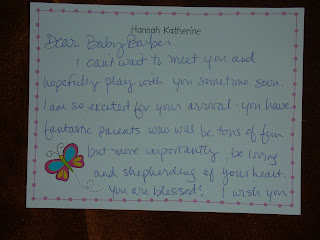 Hannah Katherine
Dear Baby Barber
I cant wait to meet you and
hopefully play with you sometime soon.
I am so excited for your arrival - you have
fantastic parents who will be tons of fun
but more importantly, be loving
and shepherding of your heart.
You are blessed! I wish you